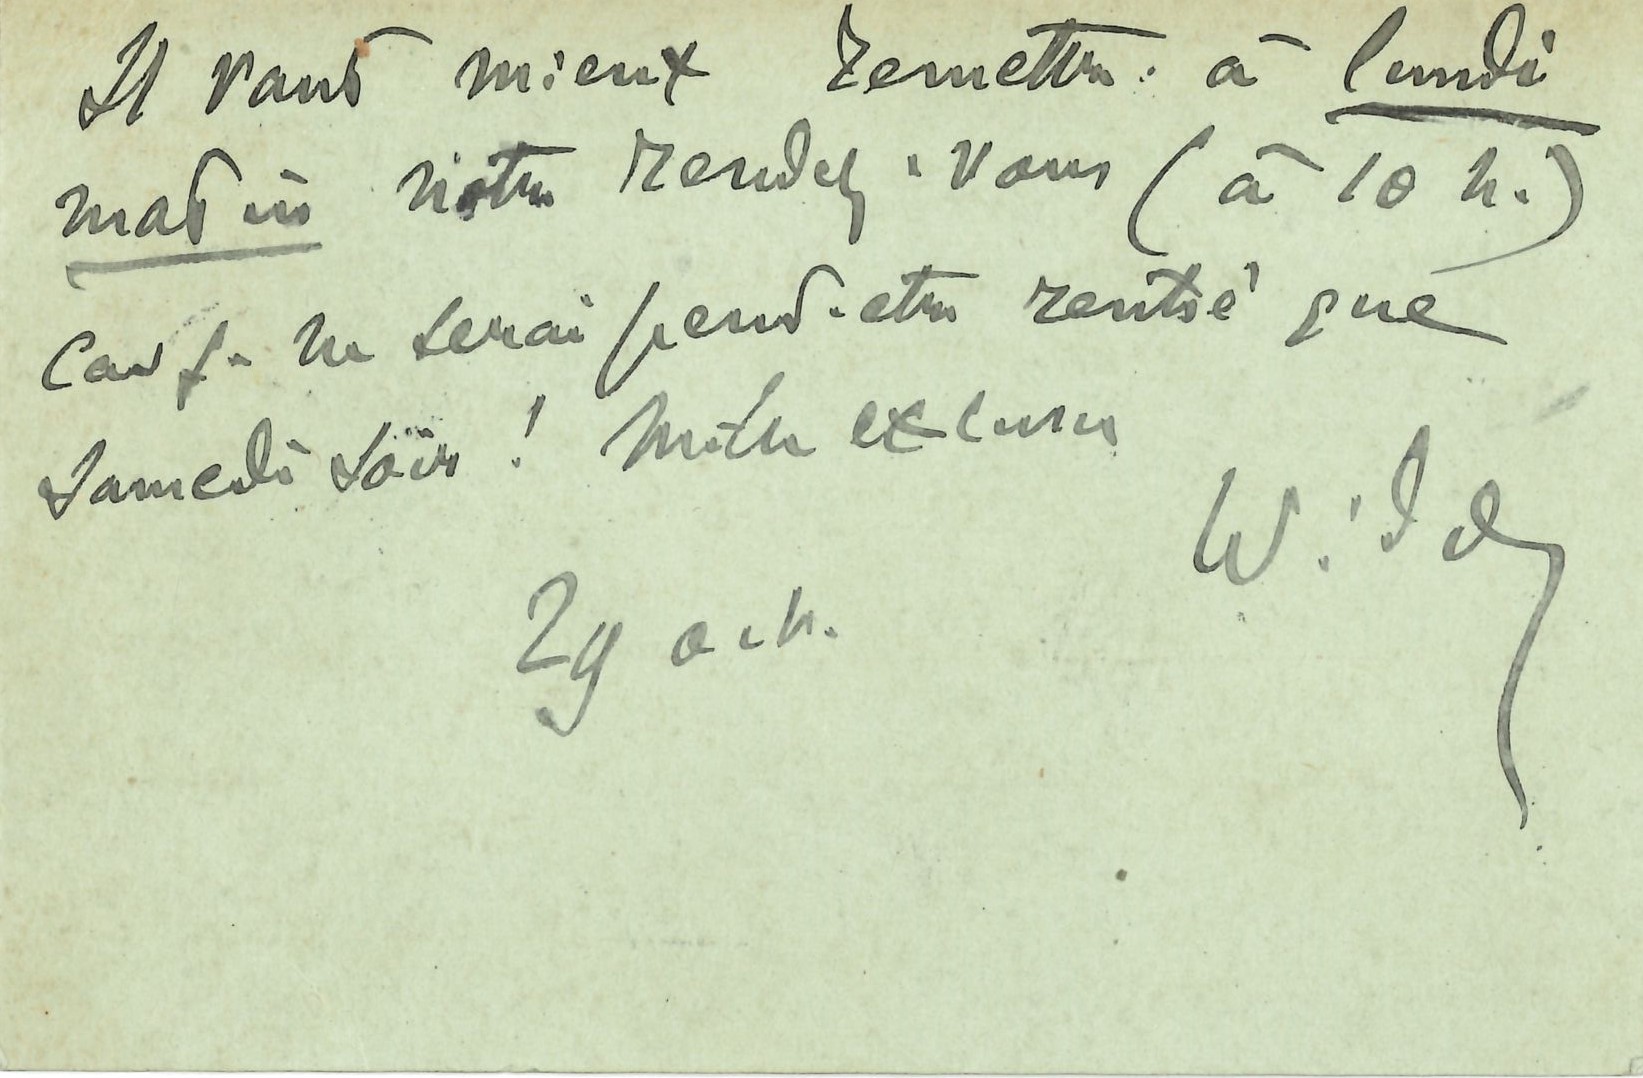 Il vaut mieux remettre à lundi
matin notre rendez-vous (à 10 h.)
car je ne serai peut-etre rentré que
samedi soir ! Mille excuses
29 oct.